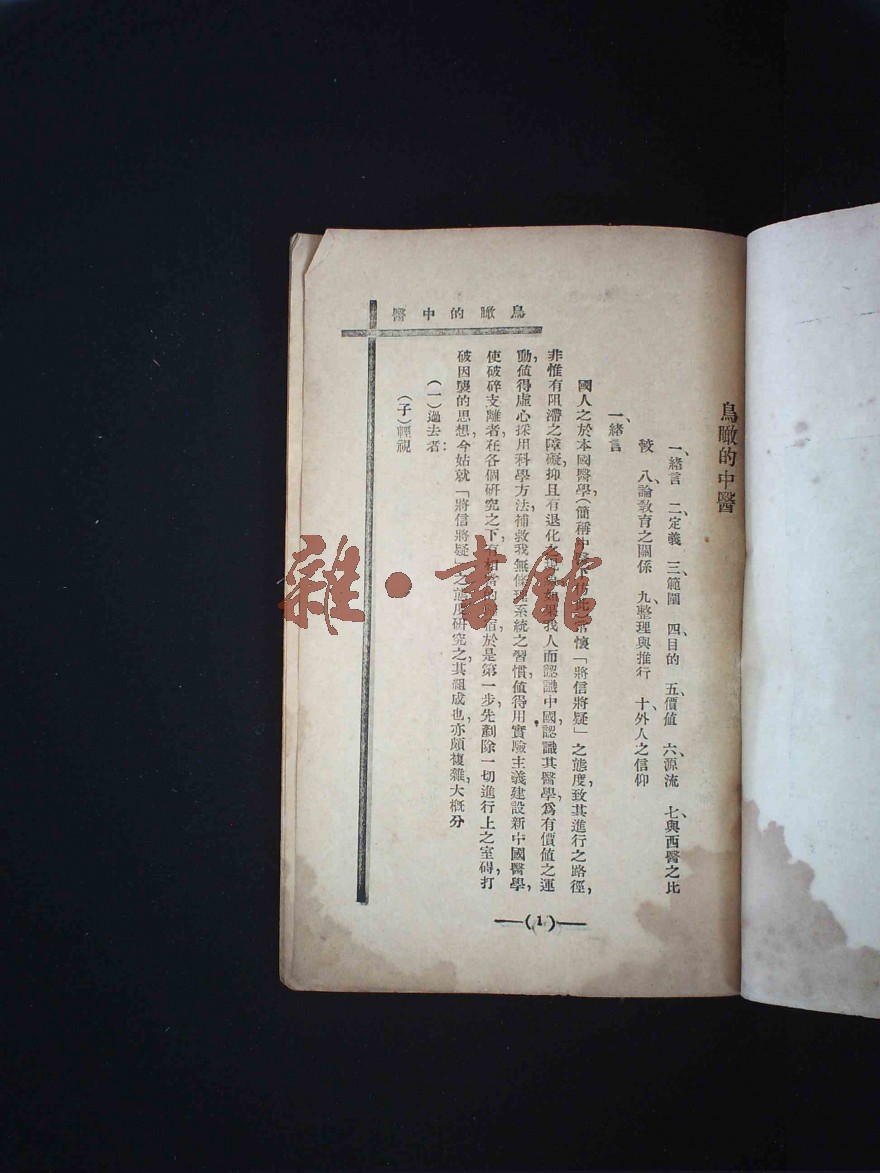 鳥瞰的中醫
一、緒言 二、定義 三、範圍 四、目的 五、價値 六、源流 七、與西醫之比
較 八、論敎育之關係 九、整理與推行 十、外人之信仰
一、緒言
國人之於本國醫學，（簡稱中醫下仿此）常懷「將信將疑」之態度，致其進行之路徑，
非惟有阻滯之障礙，抑且有退化之現 如果我人而認識中國，認識其醫學，爲有價値之運
動，値得虛心採用科學方法，補救我無條理系統之習慣，値得用實驗主義建設新中國醫學，
使破碎支離者，在各個研究之下，有相當的 宿，於是第一步，先剷除一切進行上之窒碍，打
破因襲的思想，今姑就「將信將疑」之態度研究之，其組成也，亦頗複雜，大概分
（一）過去者：
（子）輕視
鳥瞰的中醫
（1）
雜·書館